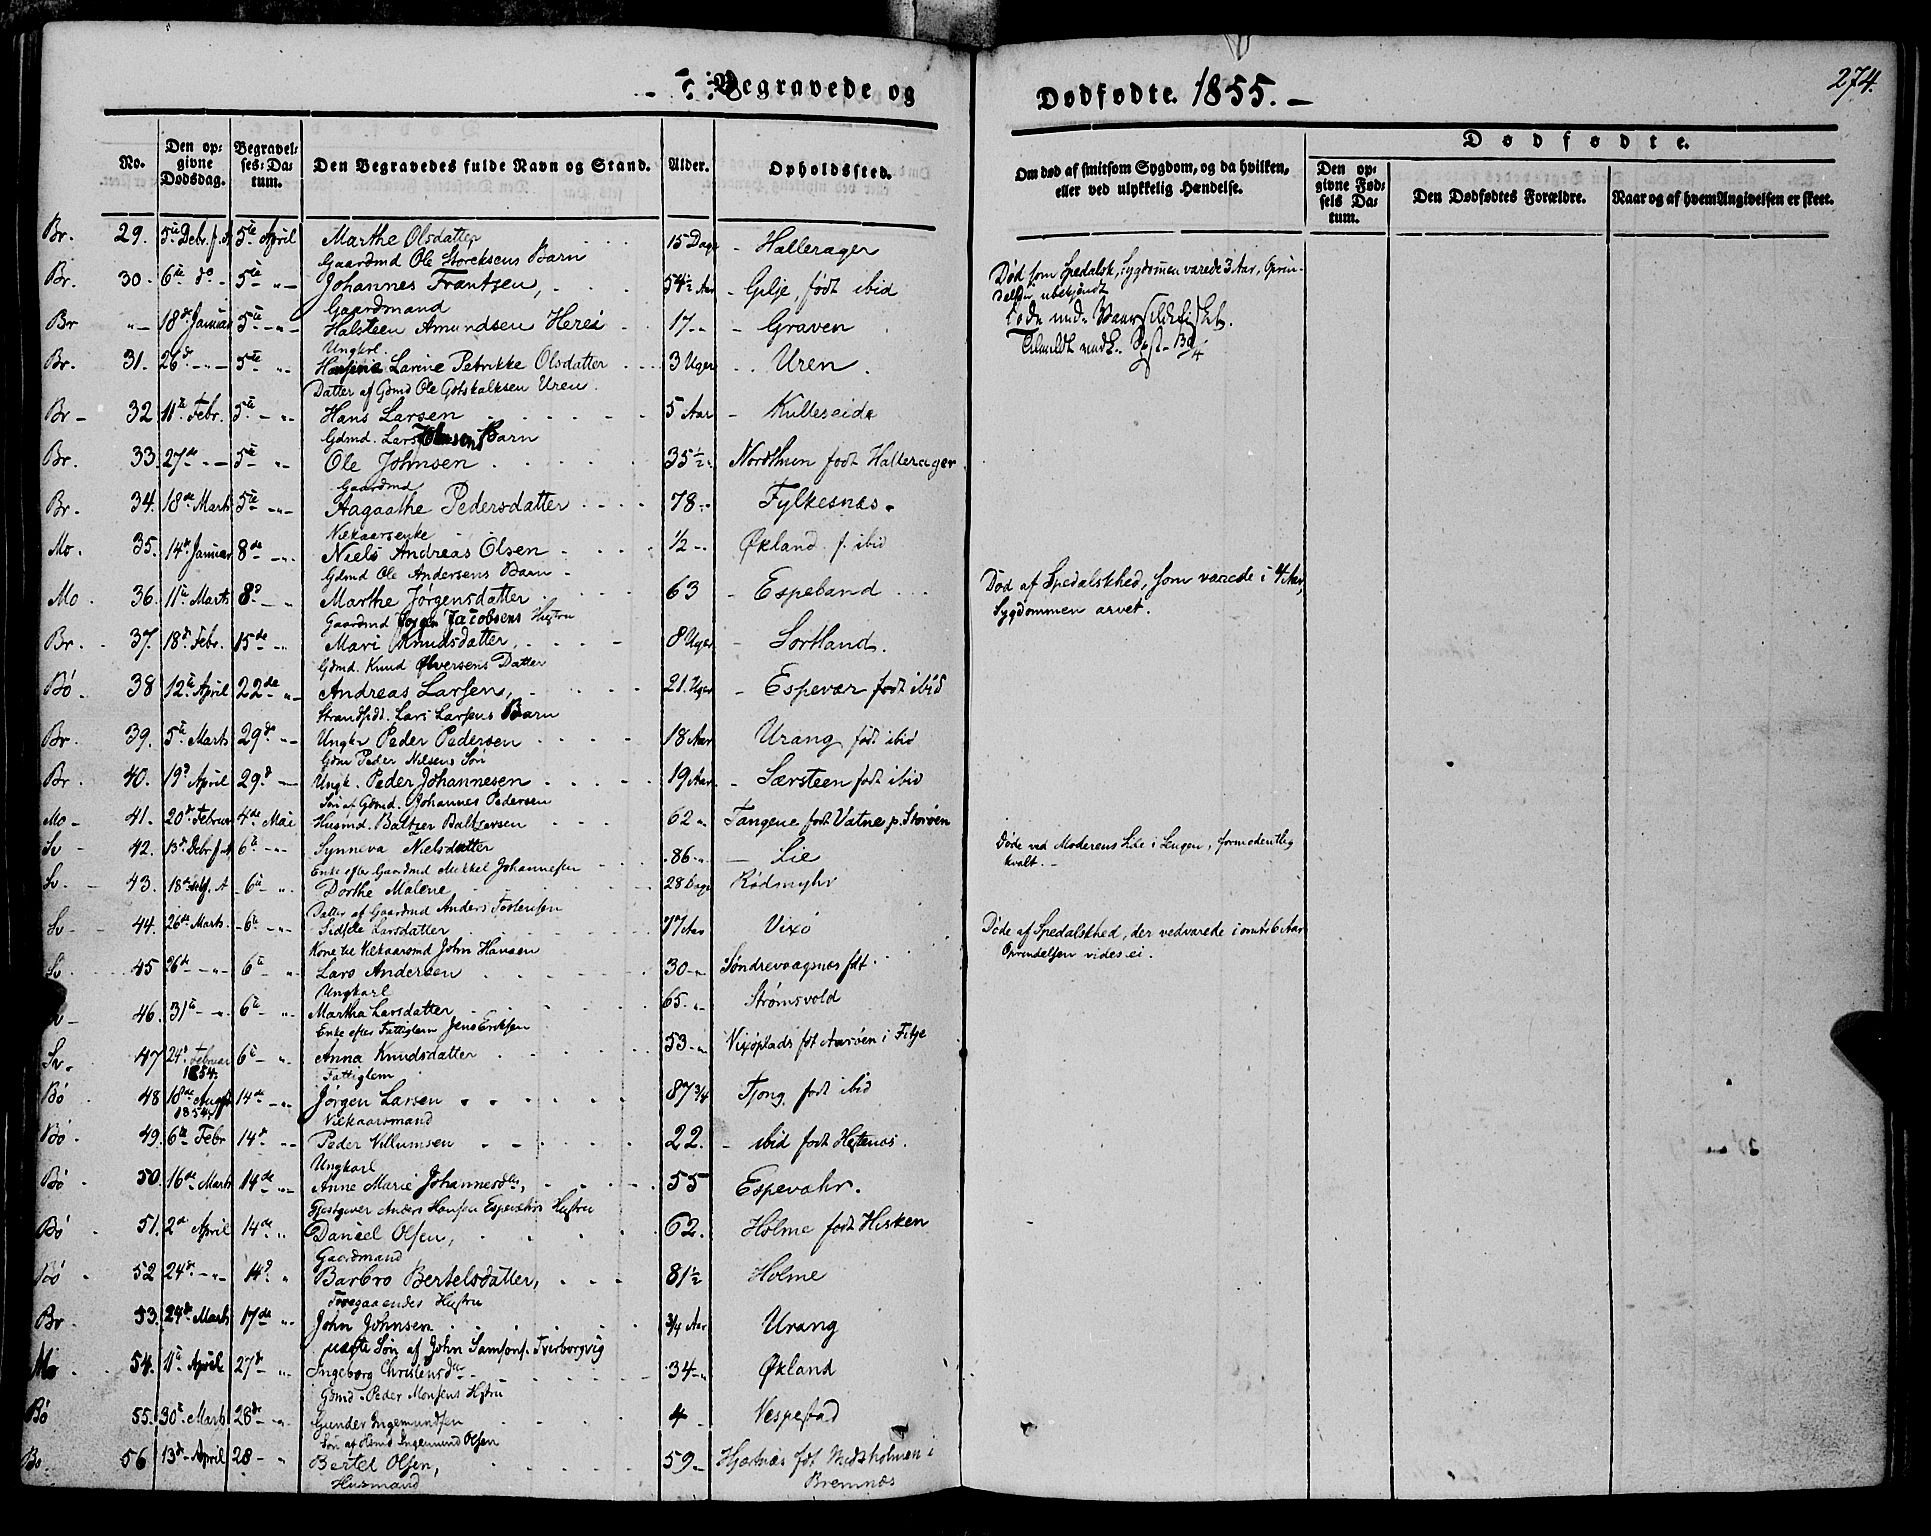 Begravede og
Dødfødte. 1855. —
274.
No.
Den op-
givne
Dødsdag.
Begravel-
ses-Da-
tum.
Den Begravedes fulde Navn og Stand.
Alder.
Opholdssted.
Om død af smitsom Sygdom, og da hvilken,
eller ved ulykkelig Hændelse.
Dødfødte.
Den op-
givne Fød-
sels Da-
tum.
Den Dødfødtes Forældre.
Naar og af hvem Angivelsen er skeet.
Br. 29. 5te Debr. f. A 5te April Marthe Olsdatter 15 Dage - Hallerager
Gaardmd Ole Storeksens Barn
Br. 30. 6te do - 5te " - Johannes Frantsen, 54½ Aar - Gilje, født ibid Død som Spedalsk, Sygdommen varede 3 Aar, Oprin-
Gaardmand delsen ubekjendt
Br " - 18de Januar 5te - " - Halsteen Amundsen Herei 17 - " - Graven Døde under Vaarsildefisket.
Ungkrl.
Br. 31. 26de - " - 5te " Larine Petrikke Olsdatter 3 Uger - Uren.
Datter af Gdmd Ole Gotskalksen Uren.
Br - 32 11te Febr. 5te - " Hans Larsen 5 Aar - Kulleseide
Gdmd. Lars Barn
Br. 33. 27de - " - 5te - " - Ole Johnsen 35½ " Nordthun født Hallerager
Gaardmd
Br. 34. 18de Marts 5te - " - Aagaathe Pedersdatter 78 - " Fylkesnæs.
Vilkaarsenke
Mo. 35. 14de Januar 8de - " - Niels Andreas Olsen ½ - " Økland f. ibid
Gdmd Ole Andersens Barn -
Mo. 36. 11te Marts 8de - " Marthe Jørgensdatter 63 - Espeland Død af Spedalskhed, som varede i 4 Aar,
Gaardmd Jacobsens Hustru Sygdommen arvet.
Br. 37. 18de Febr. 15de - " Mari Knudsdatter 8 Uger - Sortland.
Gdmd. Knud Ølversens Datter
Bö. 38 12te April 22de " - Andreas Larsen, 21. Uger - Espevær født ibid
Strandsidd. Lars Larsens Barn
Br. 39. 5te Marts 29de " - Ungkr Peder Pedersen 18 Aar Urang født ibid
Gdm Peder Nilsens Søn
Br. 40. 19de April 29de - Ungk. Peder Johannesen 19 Aar - Særsteen født ibid
Søn af Gdmd. Johannes Pedersen
Mo - 41. 20de Februar 4de Mai Husmd. Baltzer Baltzersen 62 " Tangene født Vatne p. Storøen
Sv - 42. 13de Debr f. A 6te - " - Synneva Nielsdatter 86 - " - Lie Døde ved Moderens Side i Sengen, formodentlig
Enke efter Gaardmd Mikkel Johannesen kvalt. -
Sv. - 43. 18de A - 6te " Dorthe Malene 28 Dage Rødsmyhr
Datter af Gaardmd Anders Tostensen
Sv - 44. 26de Marts. - 6te - " - Sidsele Larsdatter 77 Aar Vixø Døde af Spedalskhed, der vedvarede i omtr 6 Aar
Kone til Vilkaarsmd John Hansen Oprindelsen vides ei.
Sv. 45 26de - " - 6te " Lars Andersen 30 - " Søndrevaagnæs fdt
Ungkarl
Sv - 46. 31te - " - 6te - " Martha Larsdatter 65. " Strømsvold
Enke efter Fattiglem Jens Eriksen
Sv. 47 24de Februar 6te - " Anna Knudsdatter 53 - " Vixøplads fdt Aarsöen i Fitje
1854. Fattiglem
Bö 48 18de August 14de - " - Jørgen Larsen 87¾ Tjong født ibid
1854 Vilkaarsmand
Bö. 49. 6te Febr 14de " - Peder Villumsen 22. - ibid født
Ungkarl
Bö. 50. 16de Marts 14de " - Anne Marie Johannesdtr, 55 Espevahr.
Gjestgiver Anders Hansen Espevahrs Hustru
Bö 51. 2den April 14de " Daniel Olsen, 62. Holme født Hisken
Gaardmand
Bö 52 24de - " - 14de " Barbro Bertelsdatter, 81½ Holme
Foregaaendes Hustru
Br - 53. 24de Marts 17de " John Johnsen ¾ Aar Urang
uægte Søn af John Samsons. Tverborgvig
Mo. 54. 11te April 27de " Ingeborg Christensdtr 34 - " Økland
Gdmd. Peder Monsens Hustru
Bö 55. 30te Marts 28de - " Gunder Ingemundsen 4 - Vespestad
Søn af Hsmd Ingemund Olsen
Bo. 56 13de April 28 - " Bertel Olsen, 59 - fdt i
Husmand Bremnæs